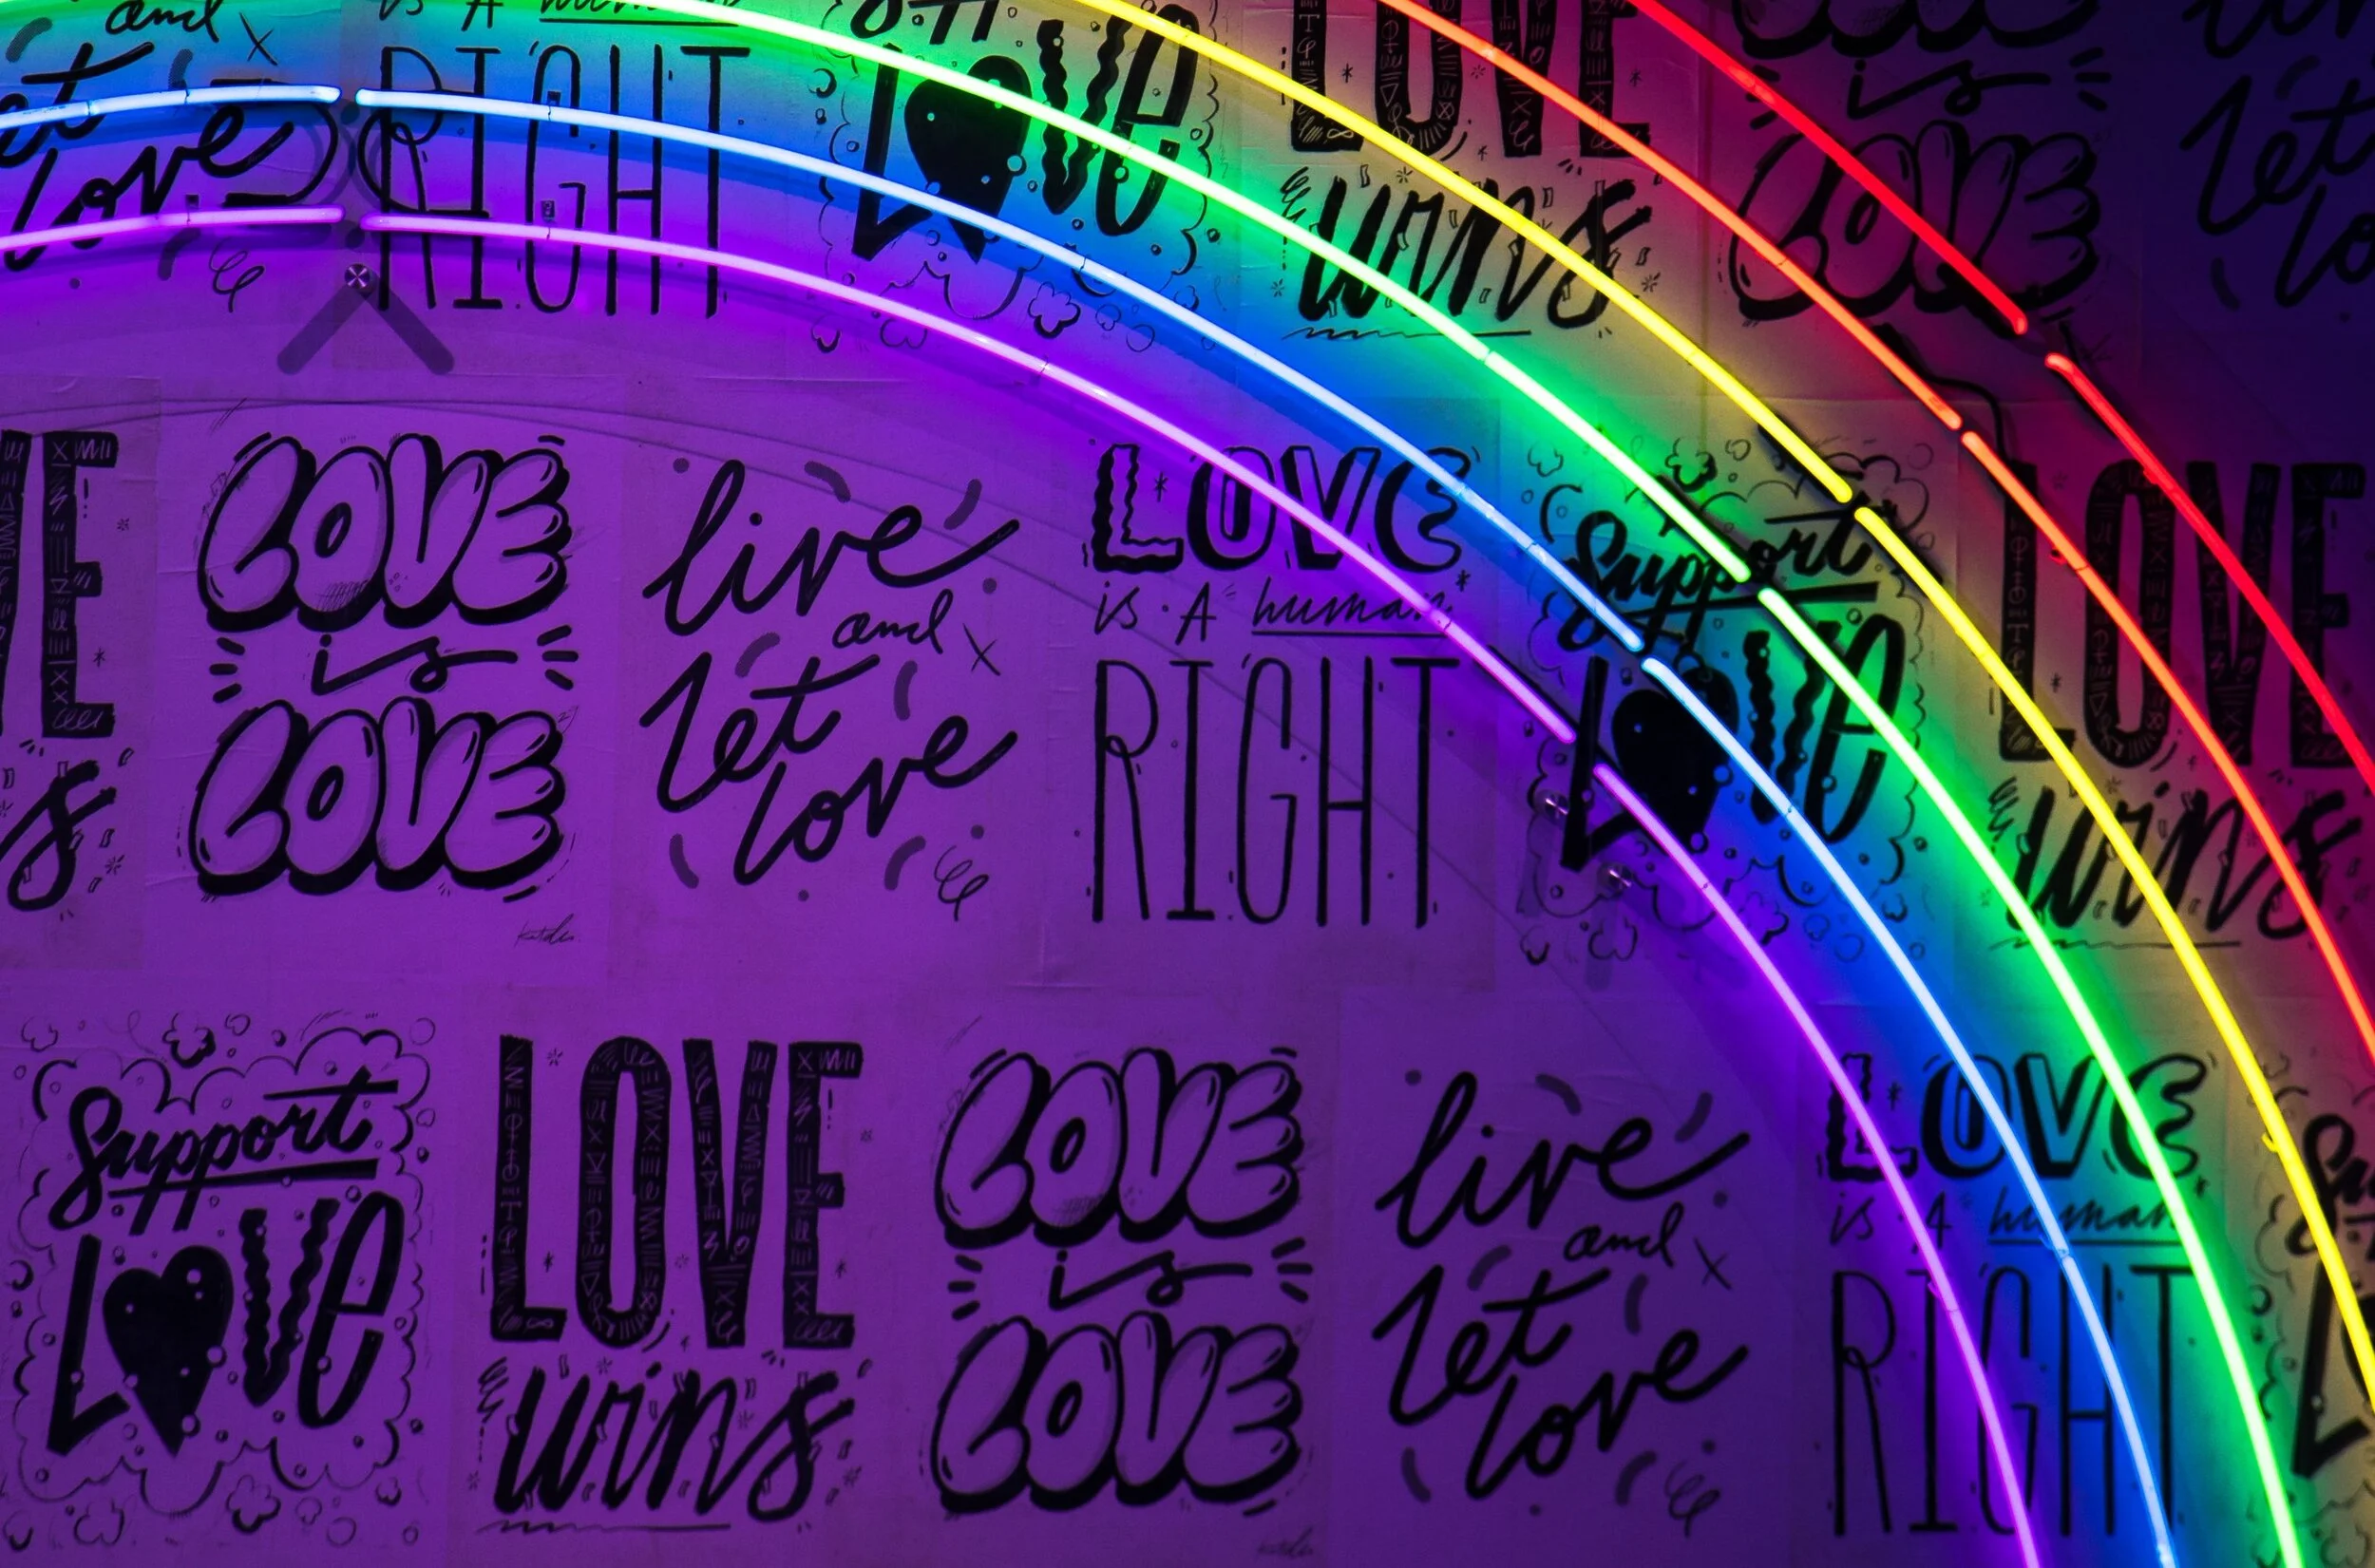 and
let
love
is A human
RIGHT
LOVE
LOVE
wins
is
LOVE
let
LOVE
is
LOVE
live
and
let
love
LOVE
is A human
RIGHT
Support
LOVE
LOVE
wins
Support
LOVE
LOVE
wins
LOVE
is
LOVE
live
and
let
love
LOVE
is A human
RIGHT